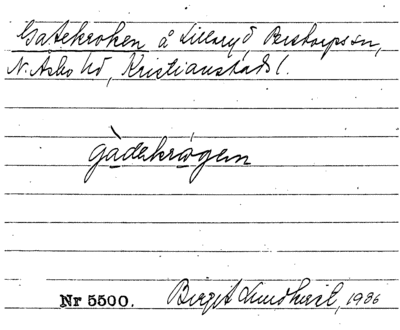 Gatekroken å Lillaryd Perstorps sn,
N. Åsbo hd, Kristianstads l.
gàdekrogen
Nr 5500. Birgit Lundkvist, 1936